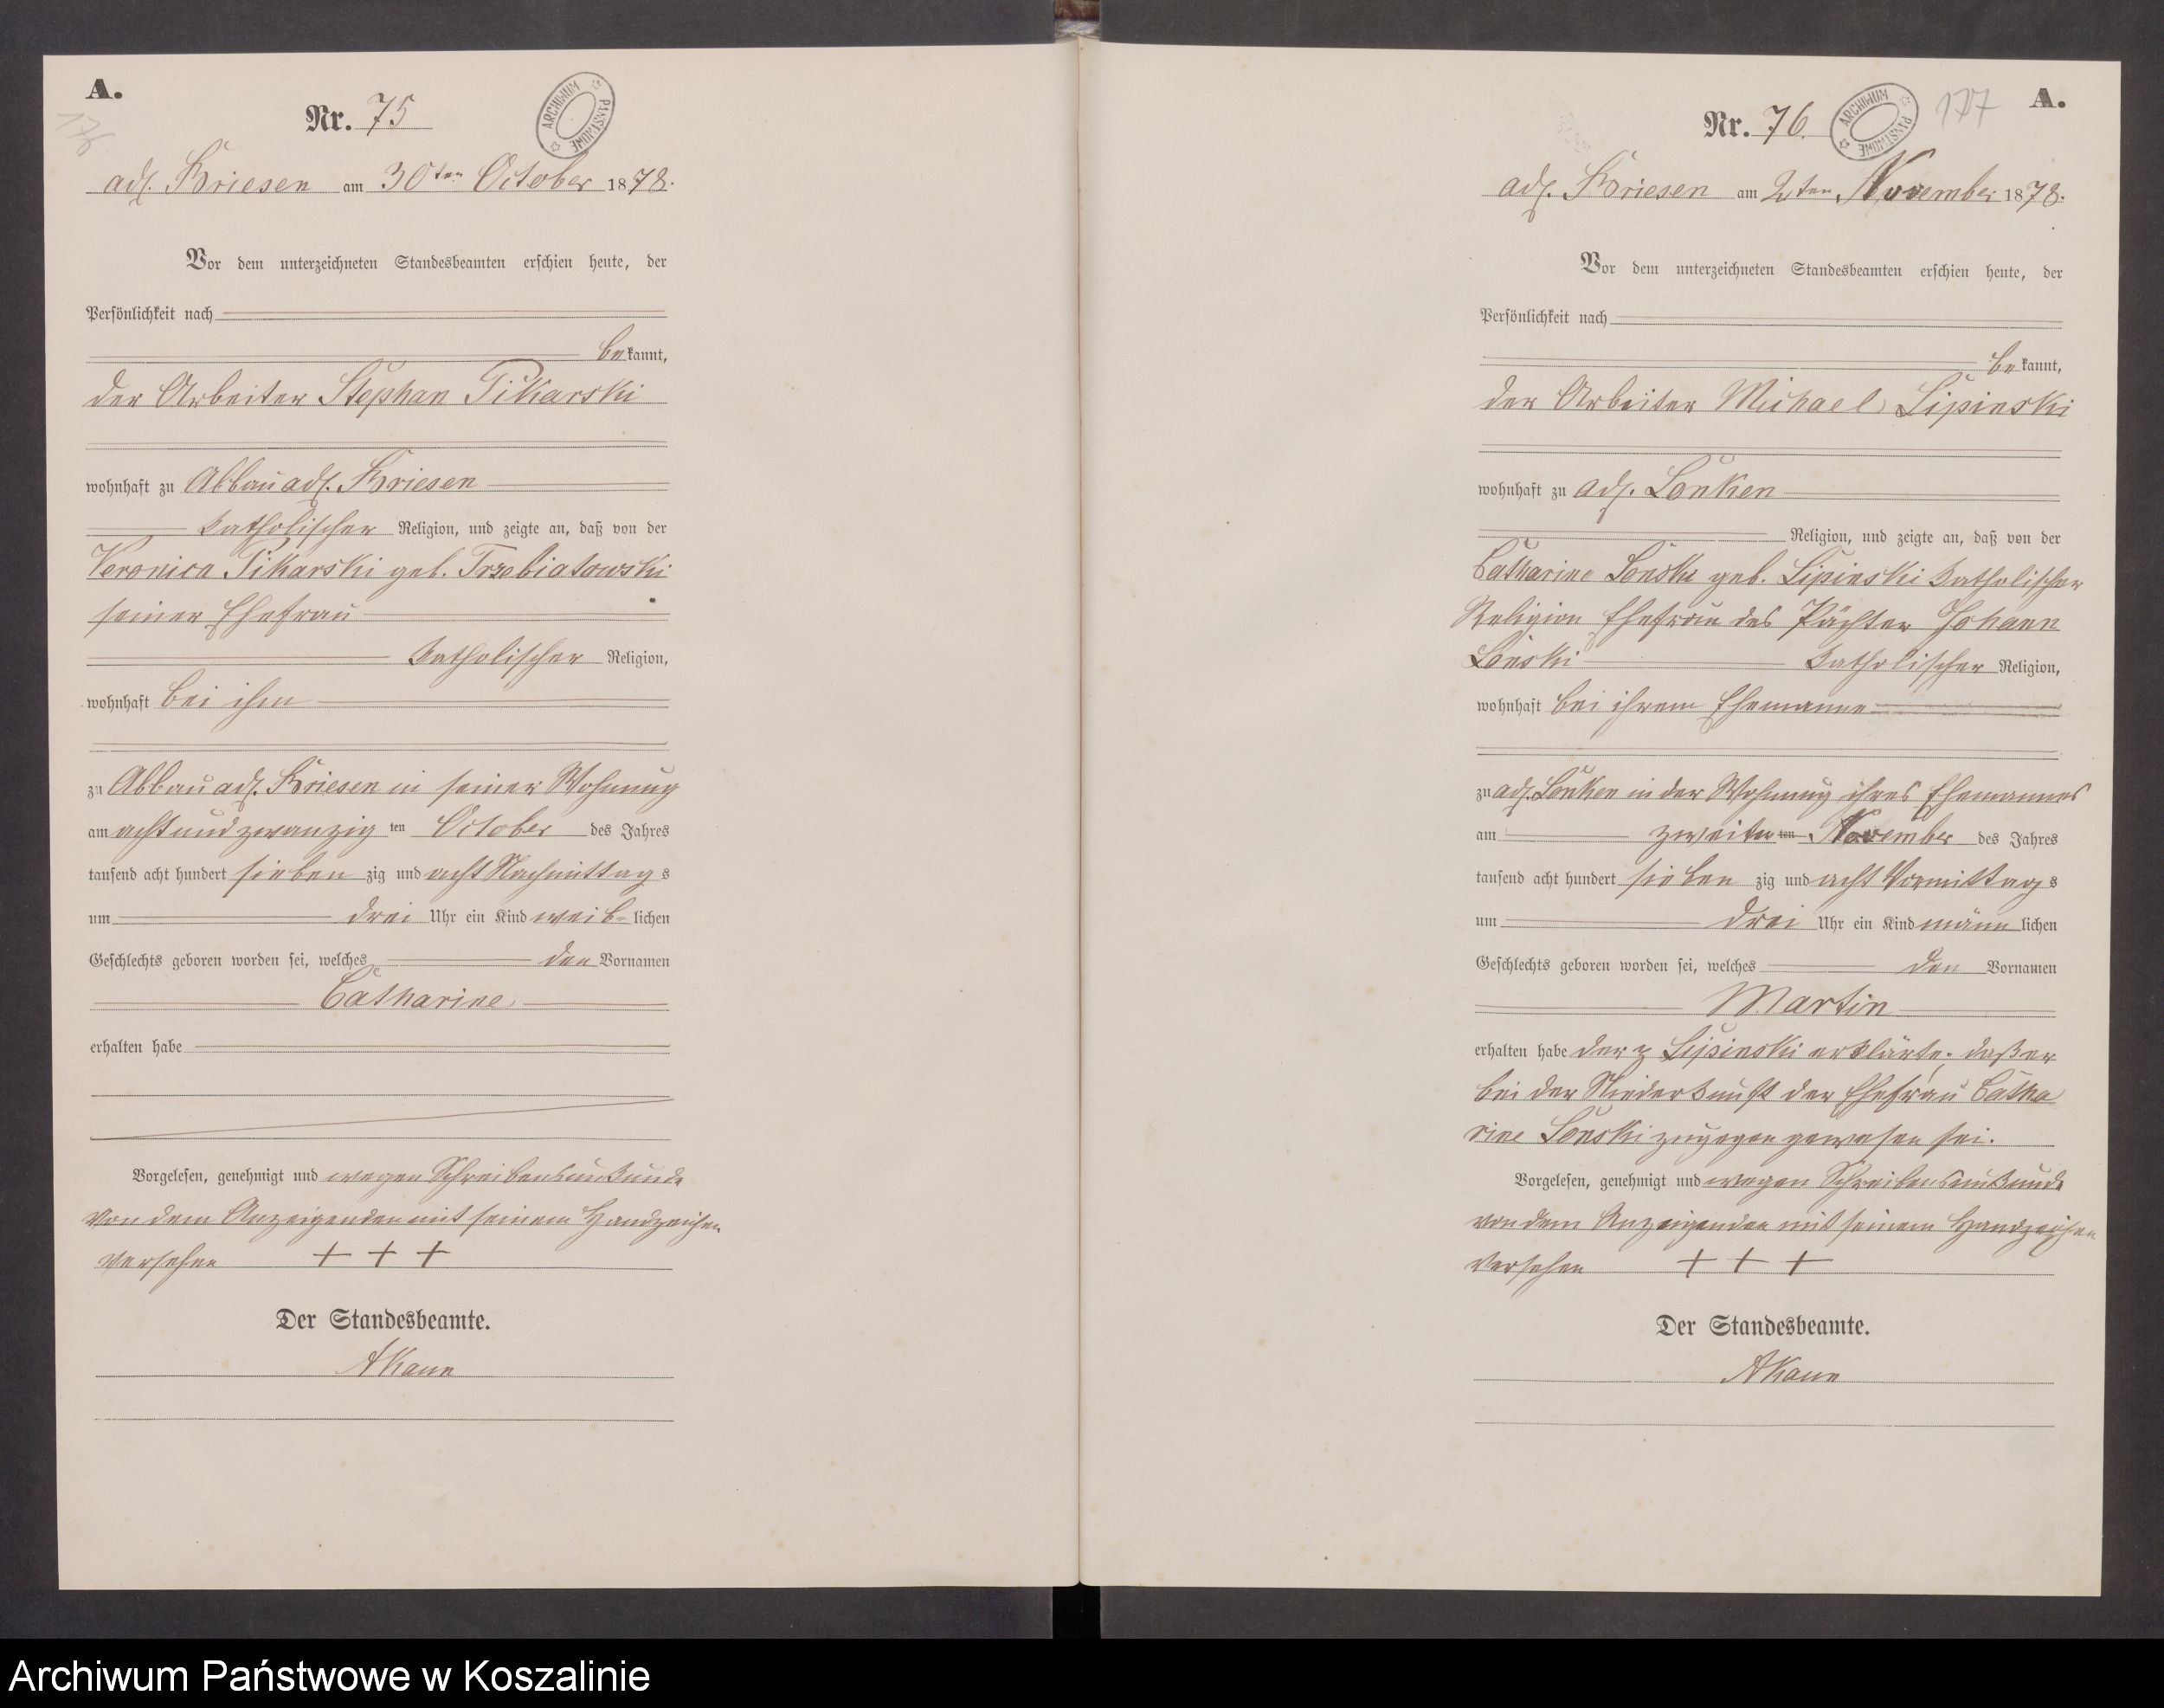 A.
176
Nr. 75
ARCHIWUM PAŃSTWOWE
adl. Briesen am 30ten October 1878.
Vor dem unterzeichneten Standesbeamten erschien heute, der
Persönlichkeit nach
bekannt,
der Arbeiter Stephan Pikarski
wohnhaft zu Abbau adl. Briesen
katholischer Religion, und zeigte an, daß von der
Veronica Pikarski geb. Trzebiatowski
seiner Ehefrau
katholischer Religion,
wohnhaft bei ihm
zu Abbau adl. Briesen in seiner Wohnung
am acht und zwanzig ten October des Jahres
tausend acht hundert sieben zig und acht Nachmittags
um drei Uhr ein Kind weib-lichen
Geschlechts geboren worden sei, welches den Vornamen
Catharine
erhalten habe
Vorgelesen, genehmigt und wegen Schreibensunkunde
von dem Anzeigenden mit seinem Handzeichen
versehen + + +
Der Standesbeamte.
A Kann
A.
177
Nr. 76.
ARCHIWUM PAŃSTWOWE
adl. Briesen am 2ten November 1878.
Vor dem unterzeichneten Standesbeamten erschien heute, der
Persönlichkeit nach
bekannt,
der Arbeiter Michael Lipinski
wohnhaft zu adl. Lonken
Religion, und zeigte an, daß von der
Catharine Lonski geb. Lipinski katholischer
Religion Ehefrau des Pächter Johann
Lonski katholischer Religion,
wohnhaft bei ihrem Ehemanne
zu adl. Lonken in der Wohnung ihres Ehemannes
am zweiten ten November des Jahres
tausend acht hundert sieben zig und acht Vormittags
um drei Uhr ein Kind männ lichen
Geschlechts geboren worden sei, welches den Vornamen
Martin
erhalten habe der Lipinski erklärte, daß er
bei der Niederkunft der Ehefrau Catha
rine Lonski zugegen gewesen sei.
Vorgelesen, genehmigt und wegen Schreibensunkunde
von dem Anzeigenden mit seinem Handzeichen
versehen + + +
Der Standesbeamte.
A Kann
Archiwum Państwowe w Koszalinie